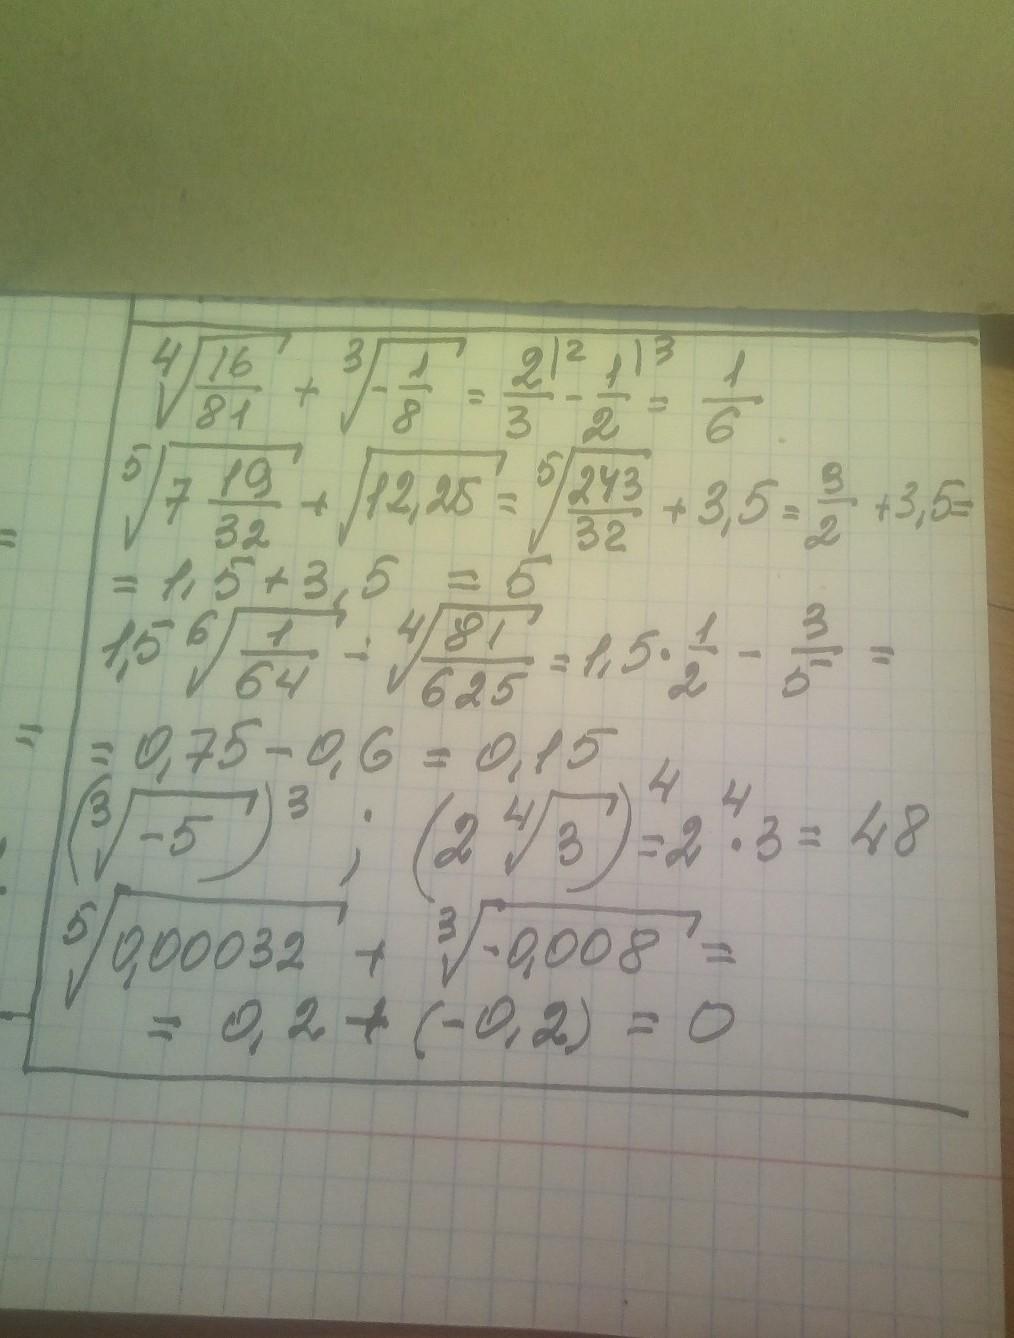 ⁴√(16/81) + ³√(-1/8) = 2/3|² - 1/2|³ = 1/6
⁵√(7 19/32) + √(12,25) = ⁵√(243/32) + 3,5 = 3/2 + 3,5 =
= 1,5 + 3,5 = 5
1,5 ⁶√(1/64) - ⁴√(81/625) = 1,5 · 1/2 - 3/5 =
= 0,75 - 0,6 = 0,15
(³√(-5))³ ; (2 ⁴√3)⁴ = 2⁴ · 3 = 48
⁵√(0,00032) + ³√(-0,008) =
= 0,2 + (-0,2) = 0